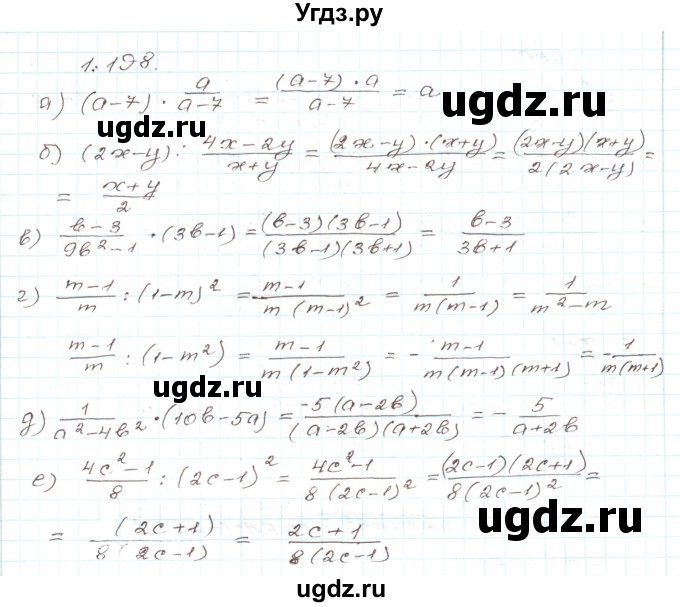 Угдз.ру
1.198.
а) (a-7) · a/(a-7) = ((a-7)·a)/(a-7) = a
ugdz.ru ugdz.ru
б) (2x-y) : (4x-2y)/(x+y) = ((2x-y)·(x+y))/(4x-2y) = ((2x-y)(x+y))/(2(2x-y)) =
= (x+y)/2
ugdz.ru
в) (b-3)/(9b²-1) · (3b-1) = ((b-3)(3b-1))/((3b-1)(3b+1)) = (b-3)/(3b+1)
г) (m-1)/m : (1-m)² = (m-1)/(m(m-1)²) = 1/(m(m-1)) = 1/(m²-m)
ugdz.ru
(m-1)/m : (1-m²) = (m-1)/(m(1-m²)) = - (m-1)/(m(m-1)(m+1)) = - 1/(m(m+1))
ugdz.ru ugdz.ru
д) 1/(a²-4b²) · (10b-5a) = (-5(a-2b))/((a-2b)(a+2b)) = - 5/(a+2b)
е) (4c²-1)/8 : (2c-1)² = (4c²-1)/(8(2c-1)²) = ((2c-1)(2c+1))/(8(2c-1)²) =
ugdz.ru
= (2c+1)/(8(2c-1)) = (2c+1)/(8(2c-1))
ugdz.ru
ugdz.ru